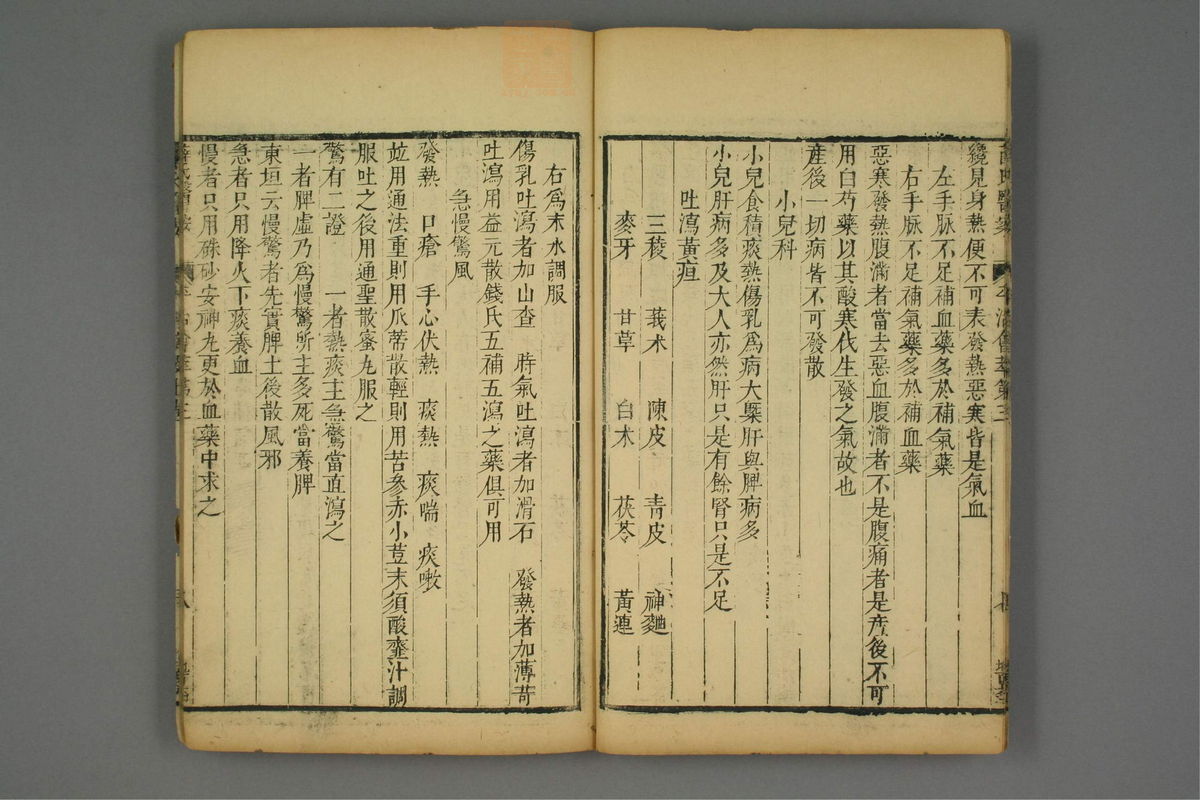 纔見身熱便不可表發熱惡寒皆是氣血
左手脉不足補血藥多於補氣藥
右手脉不足補氣藥多於補血藥
惡寒發熱腹滿者當去惡血腹滿者不是腹痛者是産後不可
用白芍藥以其酸寒伐生發之氣故也
産後一切病皆不可發散
小兒科
小兒食積痰熱傷乳爲病大槩肝與脾病多
小兒肝病多及大人亦然肝只是有餘腎只是不足
吐瀉黃疸
三稜 莪朮 陳皮 靑皮 神麯
麥牙 甘草 白朮 茯苓 黃連
右爲末水調服
傷乳吐瀉者加山查 時氣吐瀉者加滑石 發熱者加薄苛
吐瀉用益元散錢氏五補五瀉之藥俱可用
急慢驚風
發熱 口瘡 手心伏熱 痰熱 痰喘 痰嗽
竝用通法重則用瓜蔕散輕則用苦參赤小荳末須酸虀汁調
服吐之後用通聖散蜜丸服之
驚有二證 一者熱痰主急驚當直瀉之
一者脾虛乃爲慢驚所主多死當養脾
東垣云慢驚者先實脾土後散風邪
急者只用降火下痰養血
慢者只用硃砂安神丸更於血藥中求之